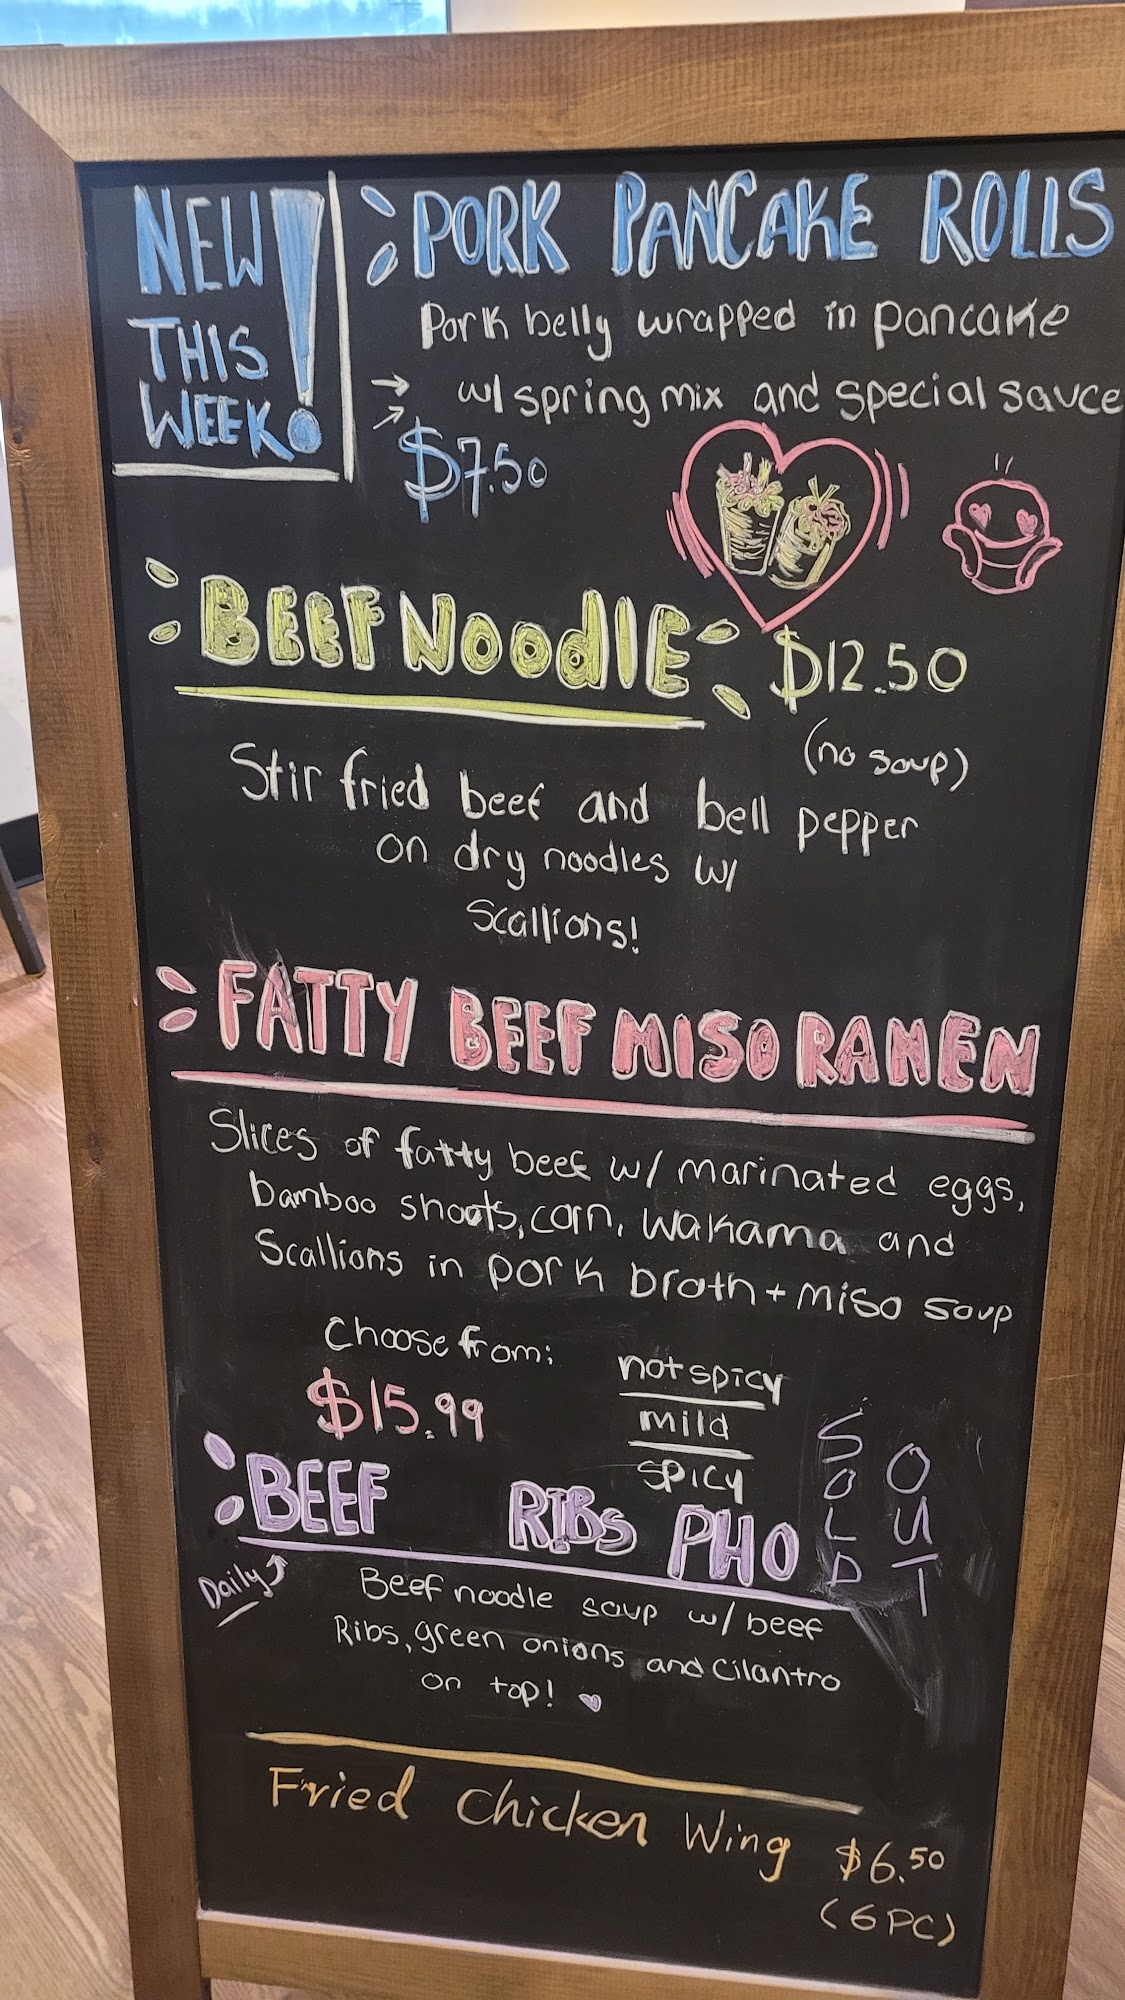 NEW
THIS
WEEK!
PORK PANCAKE ROLLS
Pork belly wrapped in pancake
→ w/ spring mix and special sauce
→ $7.50
BEEF NOODlE $12.50
(no soup)
Stir fried beef and bell pepper
on dry noodles w/
Scallions!
FATTY BEEF MISO RAMEN
Slices of fatty beef w/ marinated eggs,
bamboo shoots, corn, wakama and
Scallions in pork broth + miso soup
Choose from:
$15.99
not spicy
mild
spicy
BEEF RIBS PHO
SOLD
OUT
Daily
Beef noodle soup w/ beef
Ribs, green onions and cilantro
on top!
Fried Chicken Wing $6.50
(6 PC)